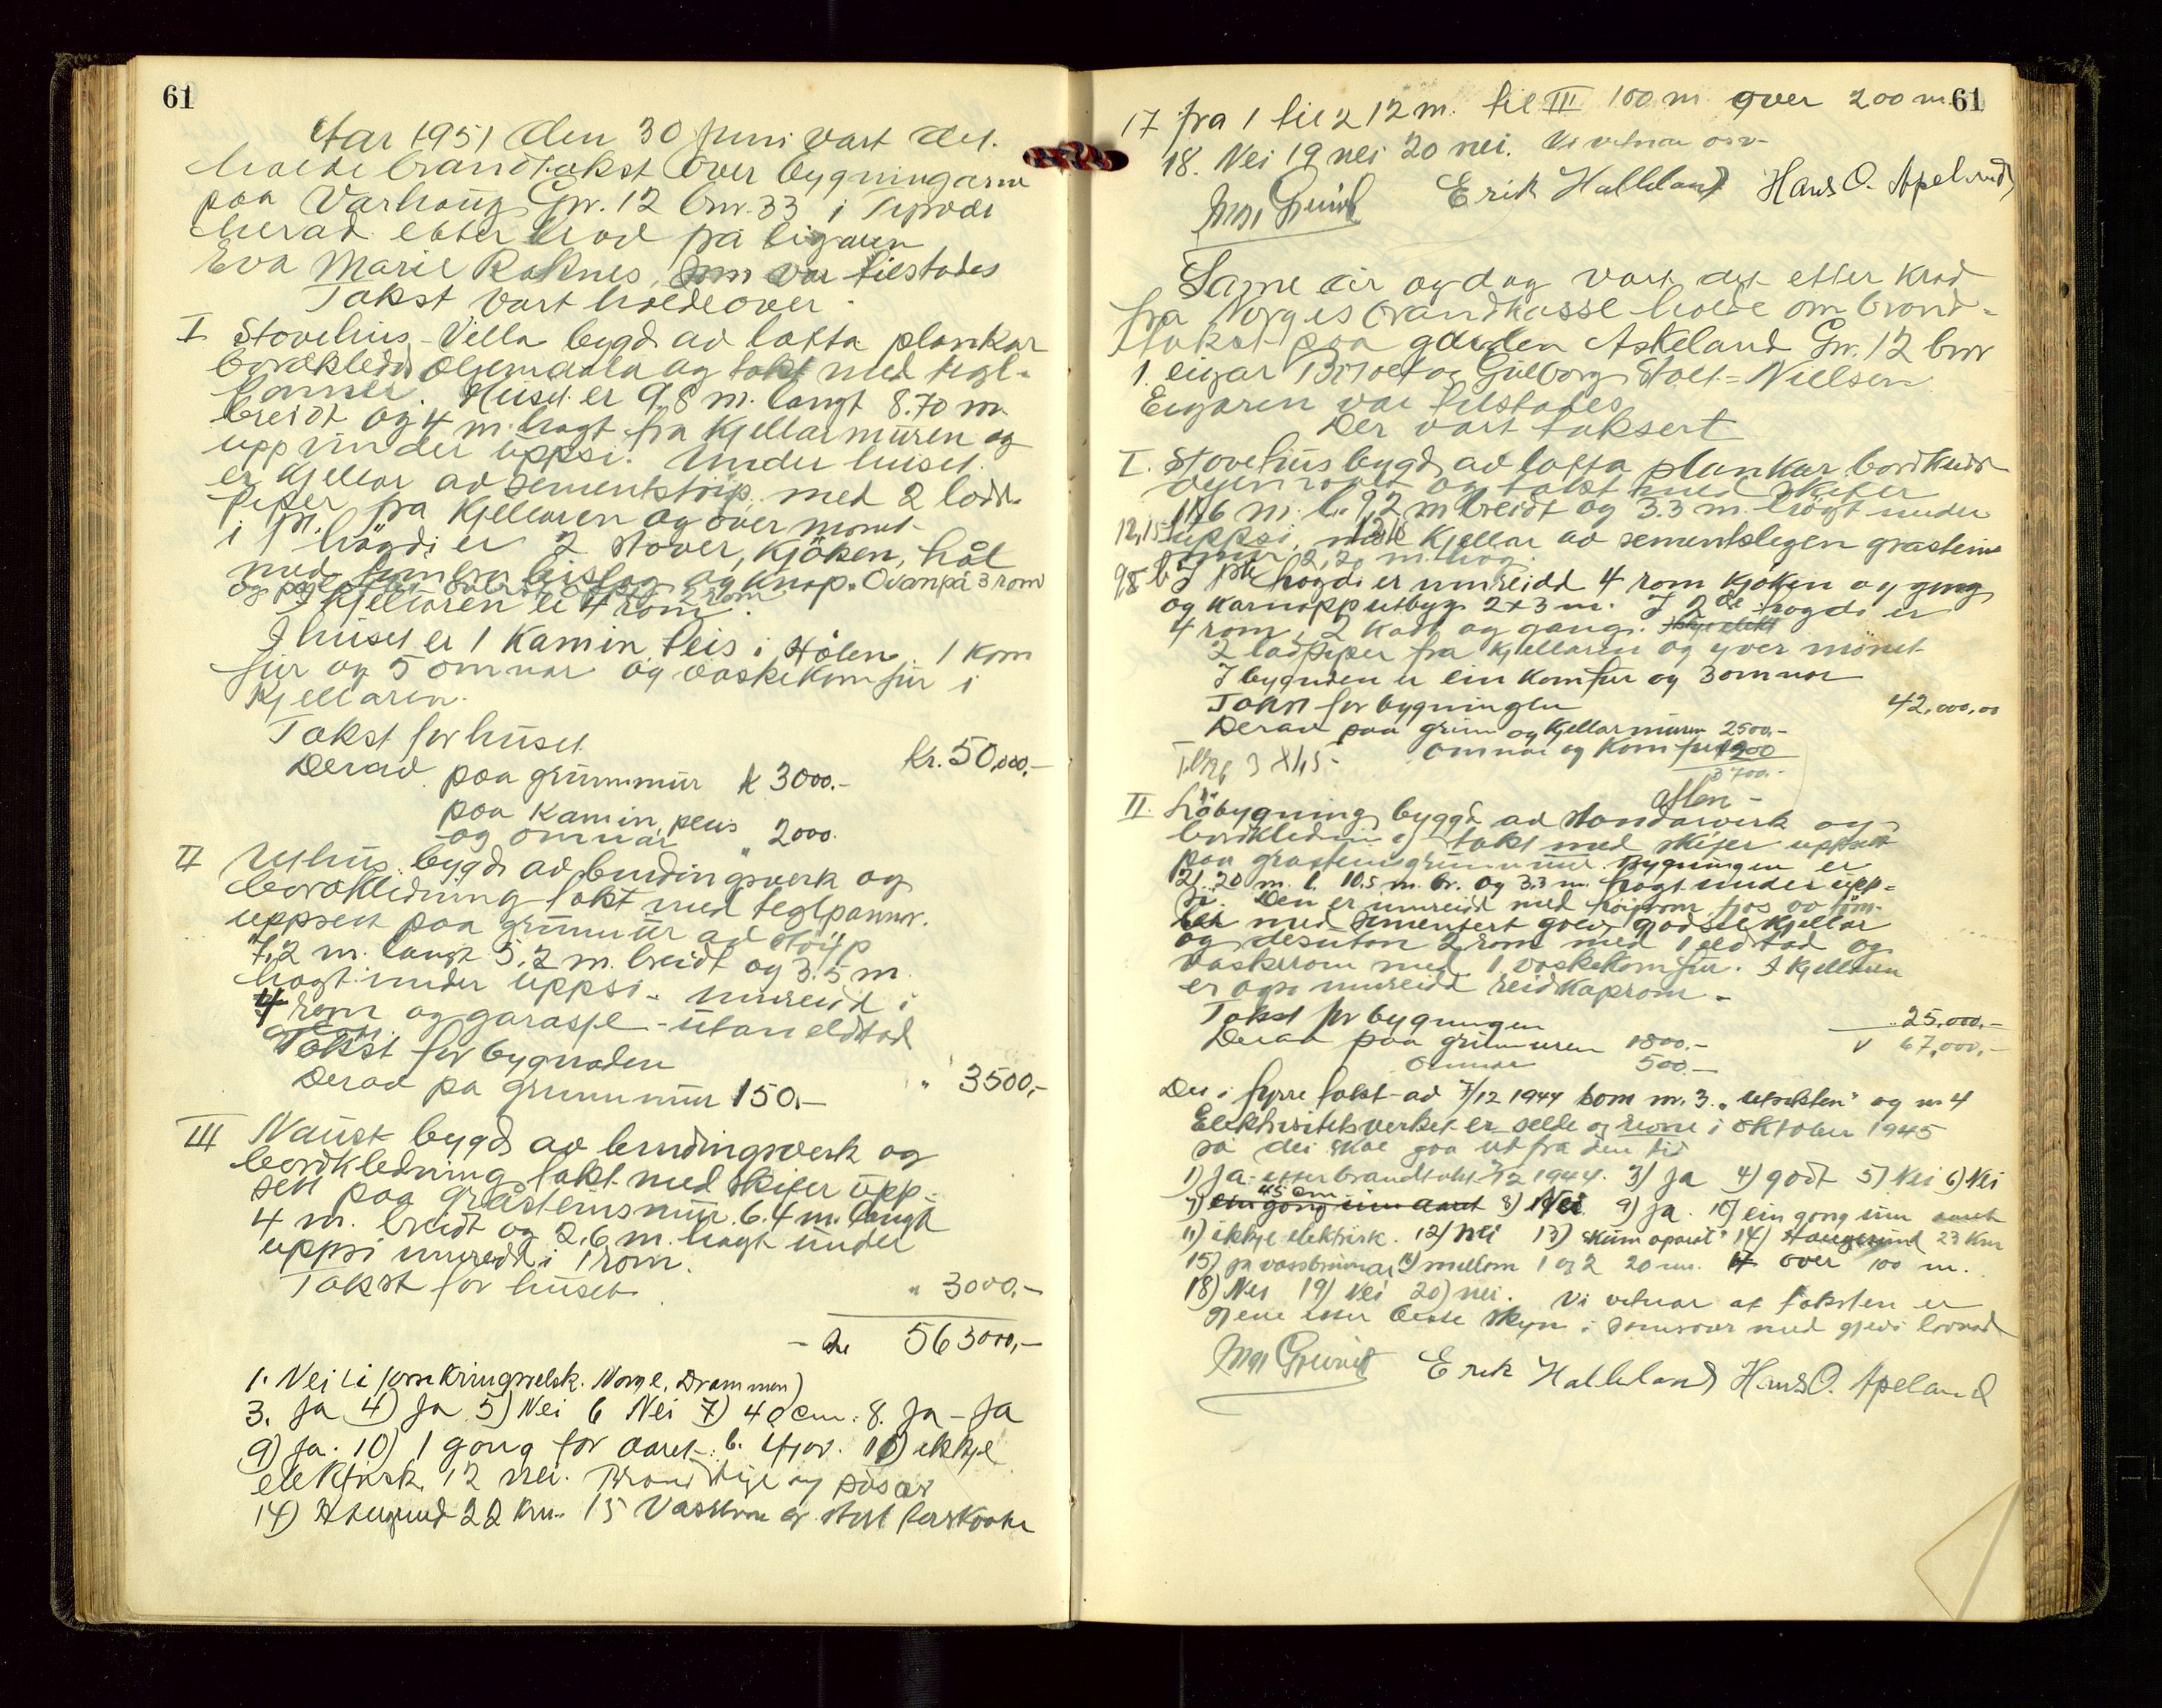 61
Aar 1951 den 30 Juni vart det
halde brandtakst over bygningarne
paa Varhaug Gnr. 12 bnr. 33 i
herad etter krav frå eigaren
Eva Marie Raknes, som var tilstades
Takst vart halde over
I Stovehus - Villa bygd av lafta plankar
bordkledd oljemaala og takt med tegl-
panner. Huset er 9,8 m. langt 8.70 m
breidt og 4 m. høgt fra kjellarmuren og
upp under uppsi. Under huset
er kjellar av sementstøip, med 2 lodd-
piper fra kjellaren og over mønet
i 1ste høgdi er 2 stover, kjøken, hål
med og knap. Ovanpå 3 rom
og 2 rom
I kjellaren er 4 rom.
I huset er 1 kamin peis i Hålen. 1 kom
fur og 5 omnar og vaskekomfur i
kjellaren.
Takst for huset
kr. 50,000,-
Derav paa grunnmur k 3000.-
paa kamin, peis
og omnar " 2000.
II Uthus bygd av bindingsverk og
bordkledning takt med teglpannor.
uppsett paa grunmur av støyp
7,2 m. langt 5,2 m. breidt og 3.5 m.
høgt under uppsi - innreid i
4 rom og garasje - utan eldstad
Takst for bygnaden
" 3500,-
Derav pa grunnmur 150,-
III Naust bygd av bindingsverk og
bordkledning takt med skifer upp-
sett paa gråsteinsmur. 6.4 m. langt
4 m. breidt og 2,6 m. høgt under
uppsi innreidd i 1 rom.
Takst for huset
" 3000.-
563000,-
1. Nei (i forsikringsselsk. Norge, Drammen)
3. Ja 4) Ja 5) Nei 6 Nei 7) 40 cm. 8. Ja - Ja
9) Ja. 10) 1 gong for aaret. 11) ikkje
elektrisk 12 nei. Brandstige og
14) Haugesund 22 km. 15
61
17 fra 1 til 2 12 m. til III 100 m over 200 m.
18. Nei 19 nei 20 nei. Vi vitnar osv-
Erik Halleland Hans O. Apeland
Same år og dag vart det etter krav
fra Norges Brandkasse halde om brand-
takst paa garden Askeland Gnr. 12 bnr
1. eigar og Gulborg Stolt-Nielsen
Eigaren var tilstades
Der vart taksert
I. Stovehus bygd av lafta plankar bordkledt
oljemaalt og takt med skifer
11,6 m. l. 9,2 m breidt og 3.3 m. høgt under
12,15 uppsi, kjellar av sementslegen graasteins
mur 2,20 m. høg.
9,8 b I 1ste høgdi er innreidd 4 rom kjøken og gong
og karnapp utbyg. 2x3 m. I 2de høgdi er
4 rom, 2 kott og gang.
2 lodpiper fra kjellaren og yver mønet
I bygnaden er ein komfur og 3 omnar
Takst for bygningen
42,000,00
Derav paa grunn og kjellarmuren 2500,-
omnar og komfur 1200
3700.-
II. Løbygning byggd av standarverk og
bordkledning takt med skifer uppsett
paa graasteinsgrunnmur. Bygningen er
21.20 m. l. 10.5 m. br. og 3.3 m. høgt under upp-
si. Den er innreidd med høirom, fjos
med sementert golv, gjødselkjellar
og desuten 2 rom med 1 eldstad og
vaskerom med 1 vaskekomfur. I kjellaren
er også innreidd reidskaprom -
Takst for bygningen
" 25,000,-
Derav paa grunmuren 1800.-
67,000,-
omnar 500.-
Dei i fyrre takst av 7/12 1944 som nr. 3. "Utsikten" og nr. 4
Elektrisitetsverket er selde og rivne i oktober 1945
så dei skal gaa ut fra den tid
1) Ja. etter brandtakst 7/12 1944. 3) Ja 4) godt 5) Nei 6) Nei
7) 45 cm 8) Nei 9) Ja. 10) ein gong um aaret
11) ikkje elektrisk. 12) nei 13) skum aparat 14) Haugesund 23 km
15) ja vassbrunnar 16) mellom 1 og 2 20 m. 17 over 100 m.
18) Nei 19) Nei 20) nei. Vi vitnar at taksten er
etter beste skyn i samsvar med gjevi lovnad
Erik Halleland Hans O. Apeland